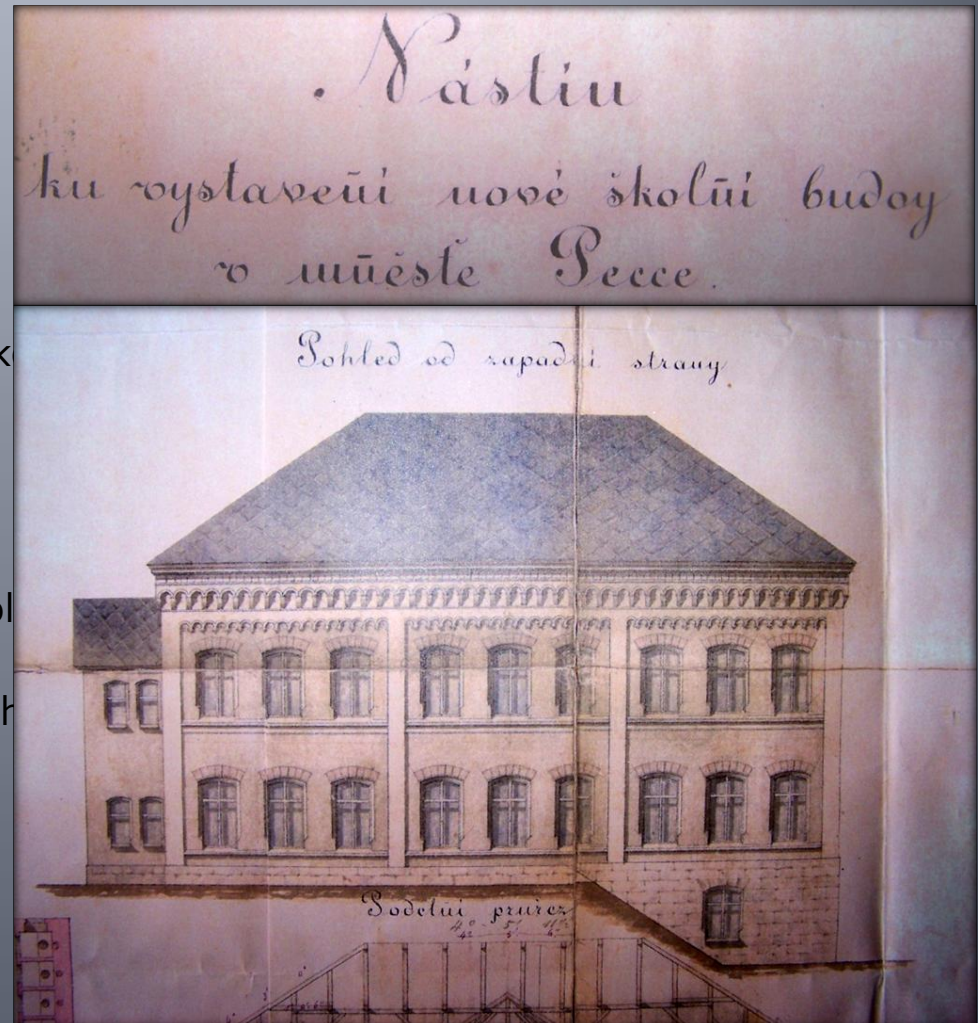 Nástin
ku vystavení nové školní budovy
v městě Pecce.
Pohled od západní strany
Podélní průřez